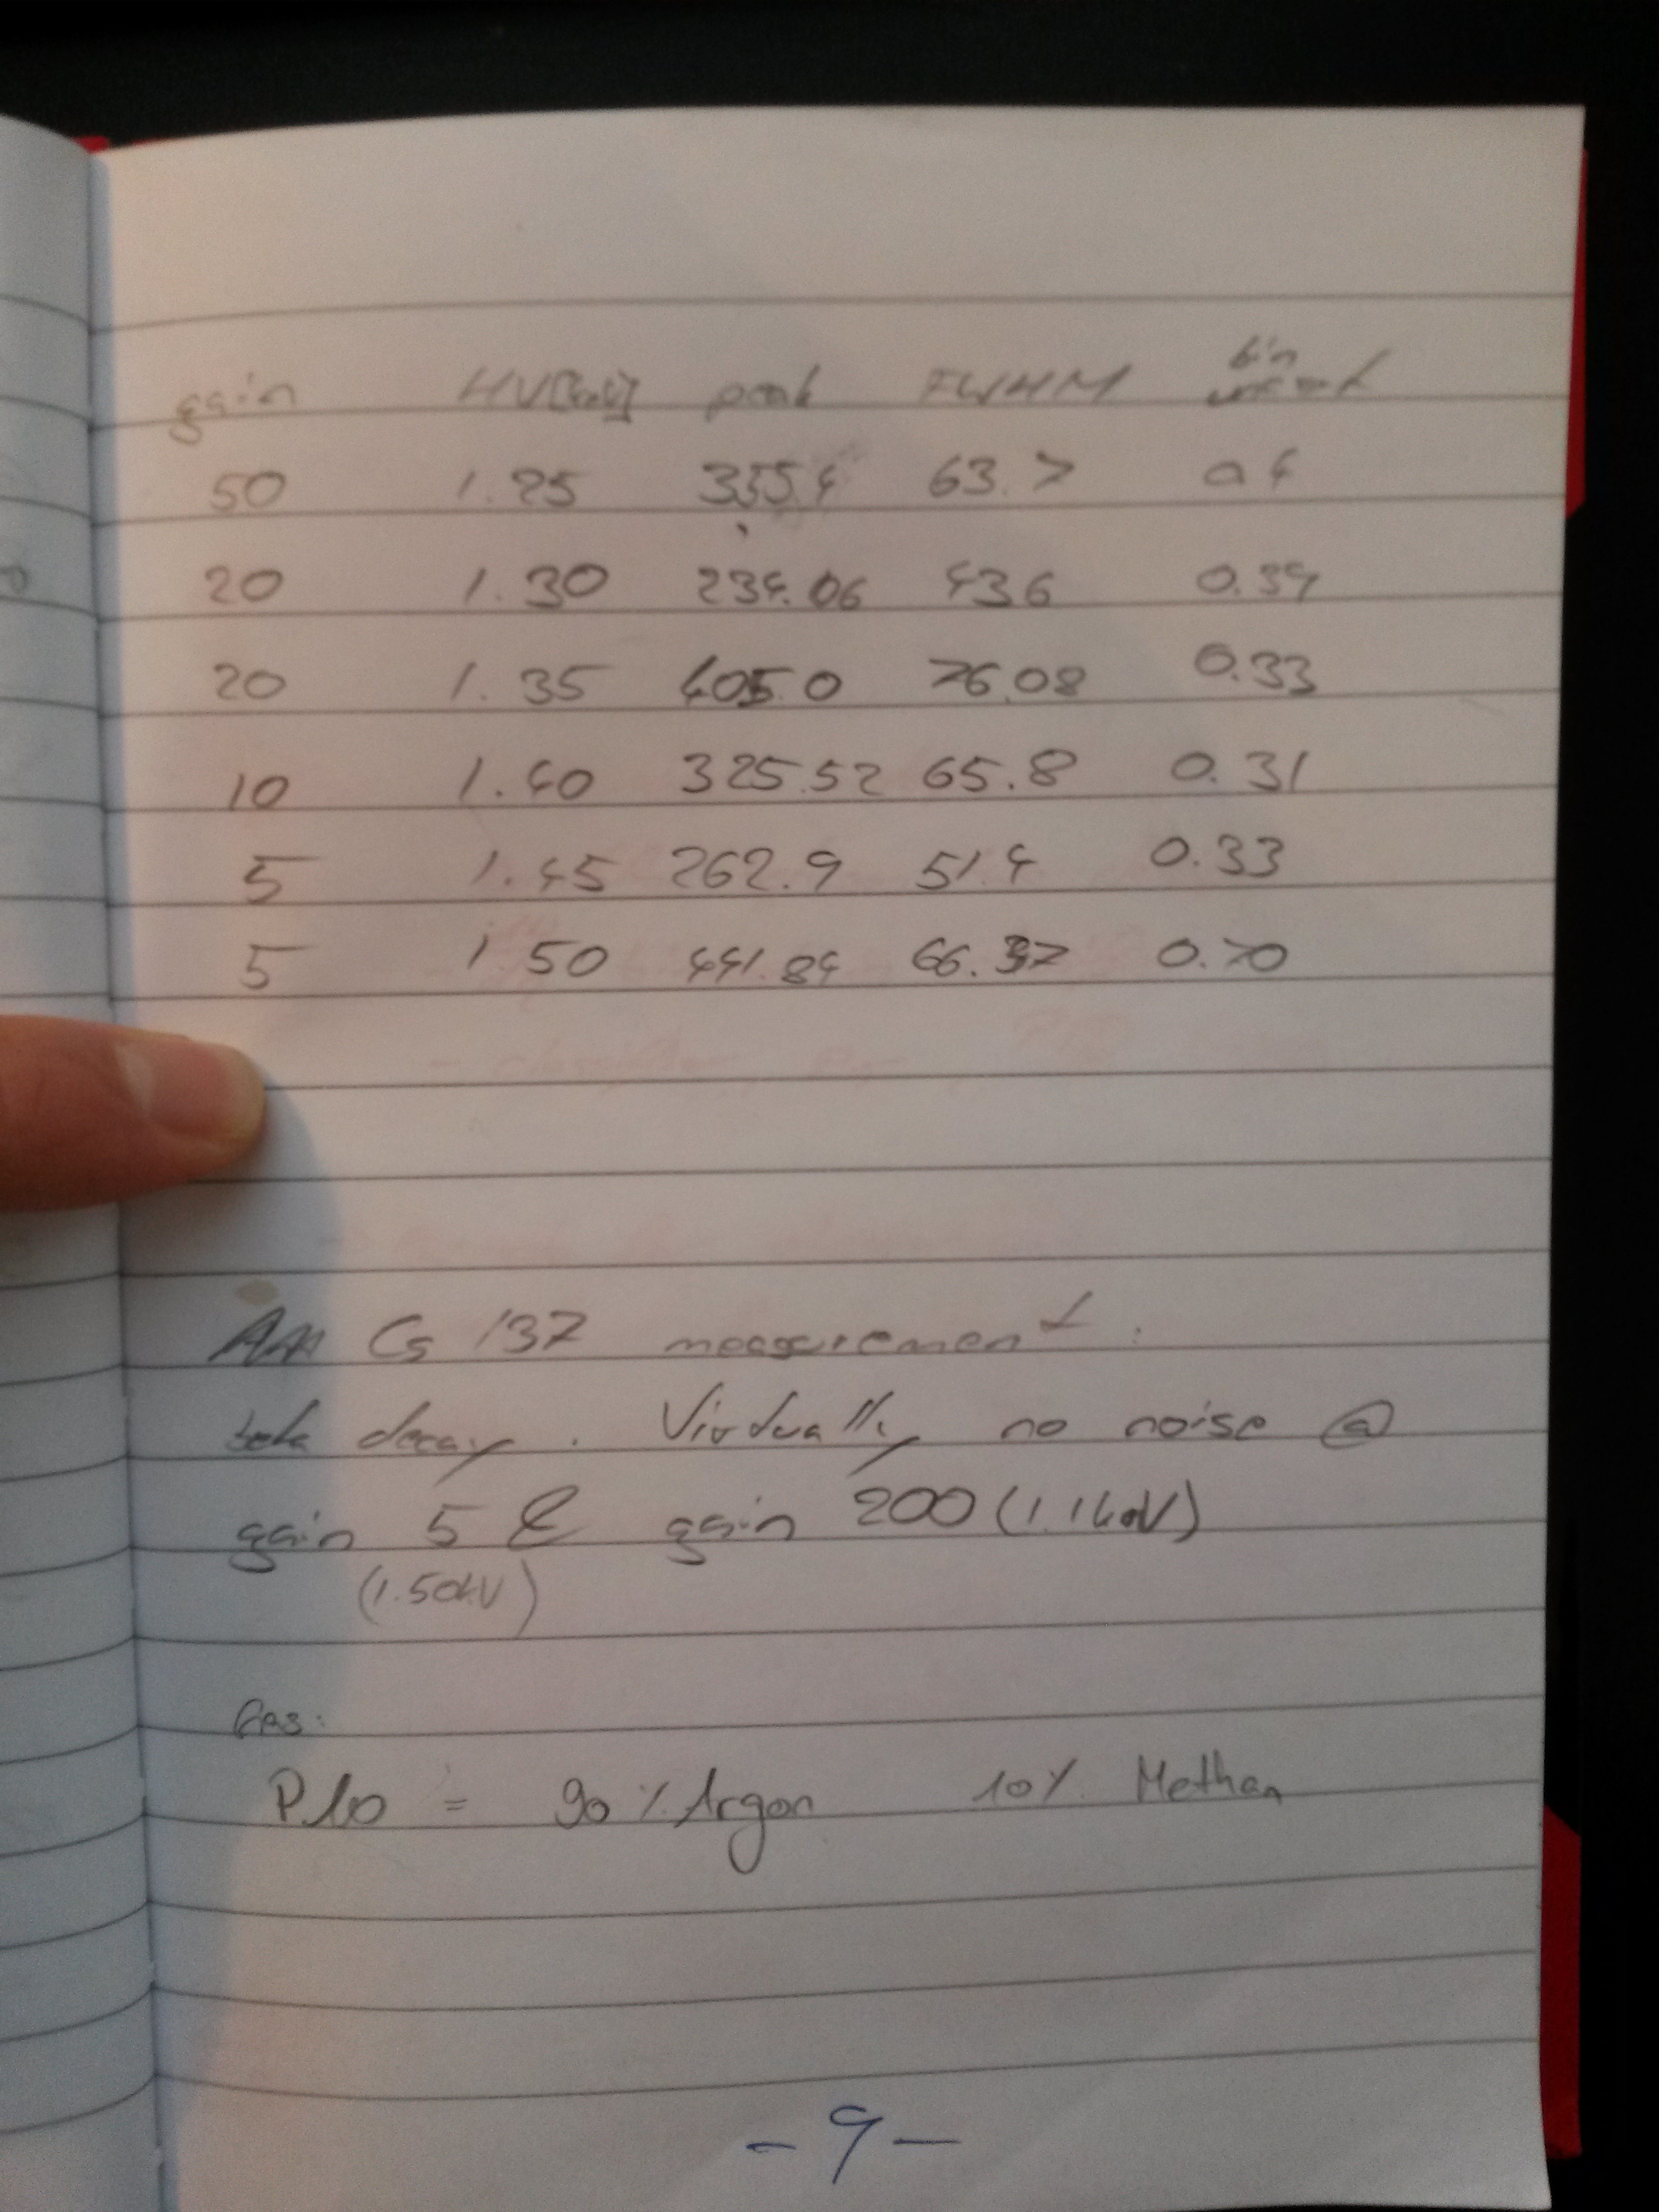 gain HV[kV] peak FWHM bin
50 1.25 355.4 63.7 0.4
20 1.30 234.06 43.6 0.34
20 1.35 405.0 76.08 0.33
10 1.40 325.52 65.8 0.31
5 1.45 262.9 51.4 0.33
5 1.50 441.84 66.37 0.70
Cs 137 measurement:
beta decay. Virtually no noise @
gain 5 & gain 200 (1.1kV)
(1.50kV)
Gas:
P10 = 90% Argon 10% Methan
- 9 -